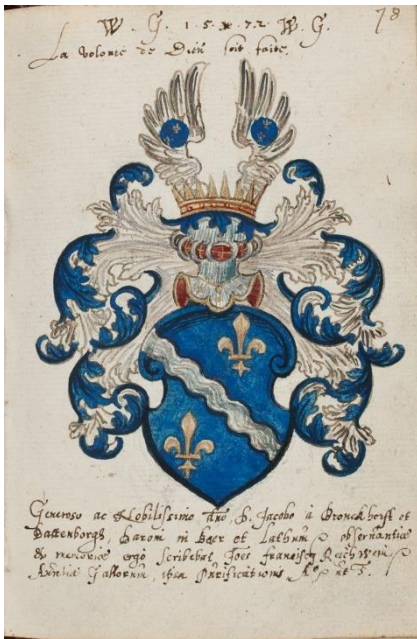 W . G . 1 . 5 . 7 . 2 . W . G .
78
La volonte de Dieu soit faite.
Generoso ac Nobilissimo dno D. Jacobo à Bronckhorst et
Battenborgh, Baroni in Baer et Lathum observantiæ
& memoriæ ergo scribebat Joës
Gallorum, Purificationis